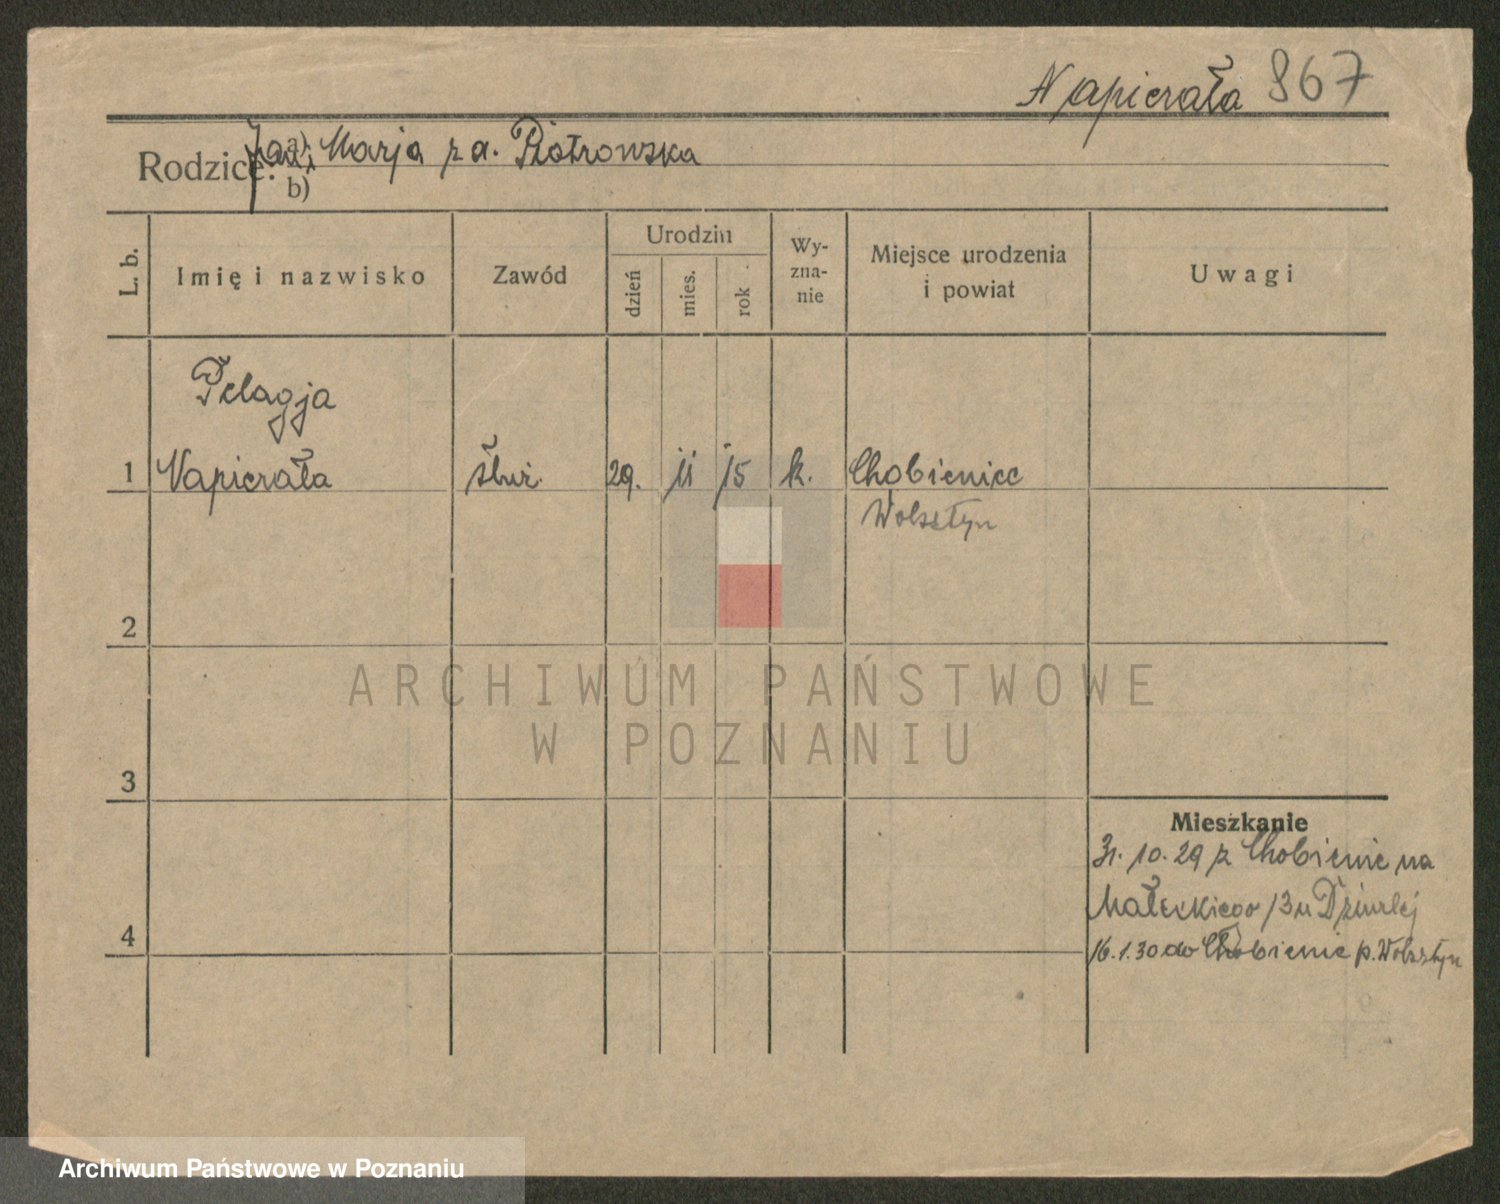 Napierała 867
Rodzice: a) Jan i Marja z d. Piotrowska
b)
L. b.
Imię i nazwisko
Zawód
Urodzin
dzień
mies.
rok
Wy-
zna-
nie
Miejsce urodzenia
i powiat
Uwagi
Pelagja
1 Napierała służ. 29. 11 15 k. Chobienice
Wolsztyn
2
ARCHIWUM PAŃSTWOWE
W POZNANIU
3
Mieszkanie
31. 10. 29 z Chobienic na
Małeckiego 13 u
4
16. 1. 30 do Chobienic p. Wolsztyn
Archiwum Państwowe w Poznaniu